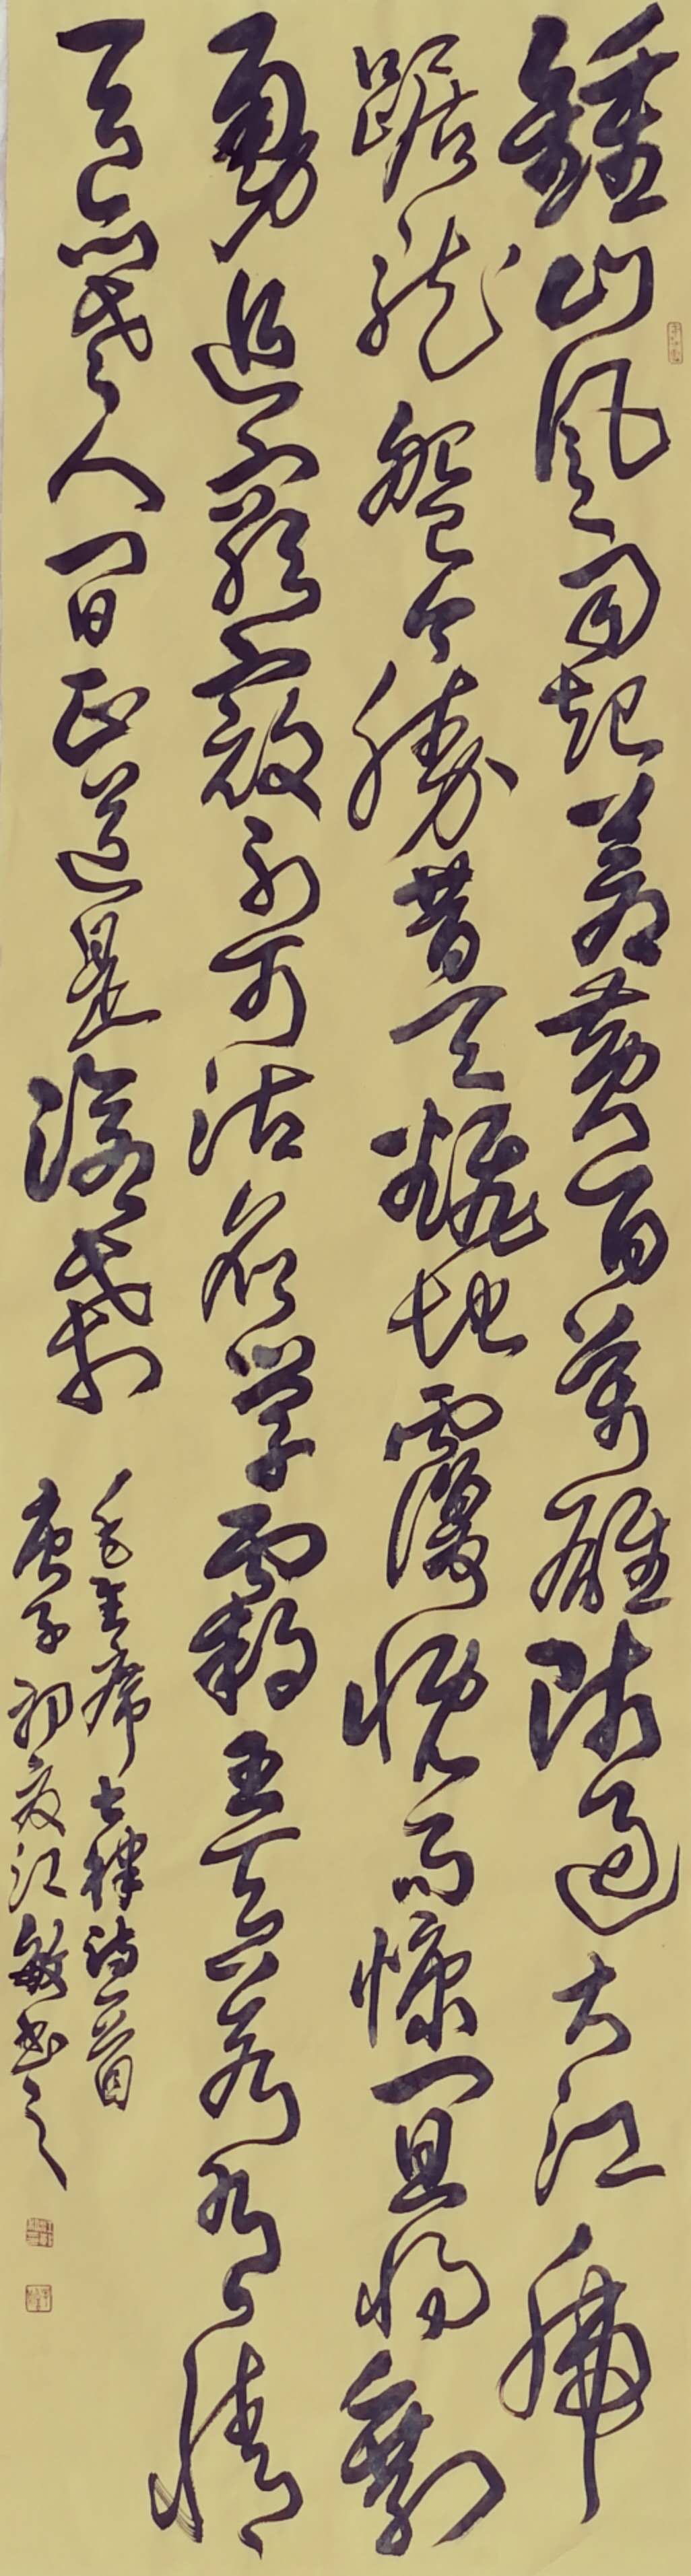 鍾山風雨起蒼黃百萬雄師過大江虎
踞龍盤今勝昔天飜地覆慨而慷宜將剩
勇追窮寇不可沽名学霸王天若有情
天亦老人間正道是滄桑
毛主席七律詩一首
庚子初夏江敏書之